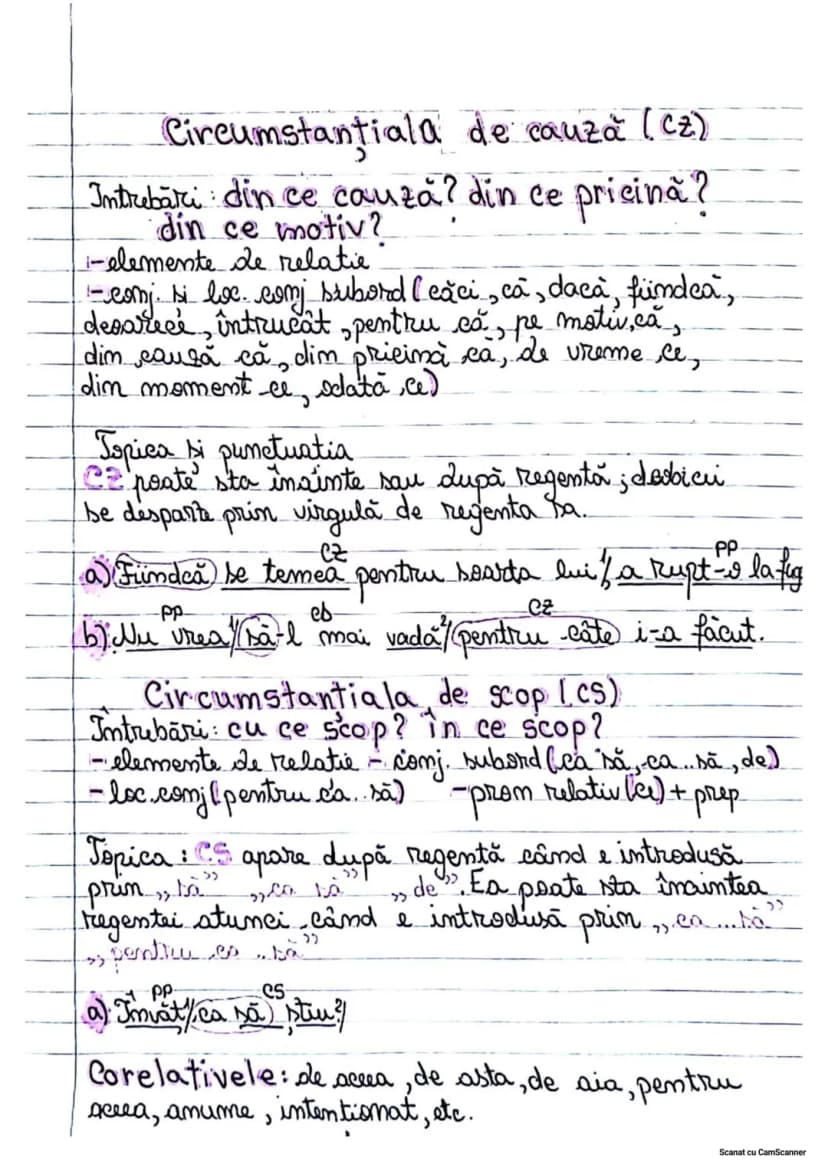 Circumstanțiala de cauză (CZ)
Întrebări: din ce cauză? din ce pricină?
din ce motiv?
-elemente de relatie
-conj. și loc. conj subord (căci, că, dacă, fiindcă,
deoarece, întrucât, pentru că, pe motiv că,
din cauză că, din pricină că, de vreme ce,
din moment ce, odată ce)
Topica și punctuatia
CZ poate sta înainte sau după regentă; deobicei
se desparte prin virgulă de regenta sa.
CZ PP
a) Fiindcă se temea pentru soarta lui¹/, a rupt-o la fug
PP cb CZ
b) Nu vrea¹/ să-l mai vadă²/ pentru câte i-a făcut.
Circumstanțiala de scop (CS)
Întrebări: cu ce scop? în ce scop?
-elemente de relatie - conj. subord (ca să, ca..să, de)
-loc.conj (pentru ca..să) -pron relativ (ce) + prep
Topica: CS apare după regentă când e introdusă
prin „să” „ca să” „de”. Ea poate sta înaintea
regentei atunci când e introdusă prin „ca...să”
„pentru ca ..să”
PP CS
a) Învăt¹/ ca să știu²/
Corelativele: de aceea, de asta, de aia, pentru
aceea, anume, intentionat, etc.
Scanat cu CamScanner